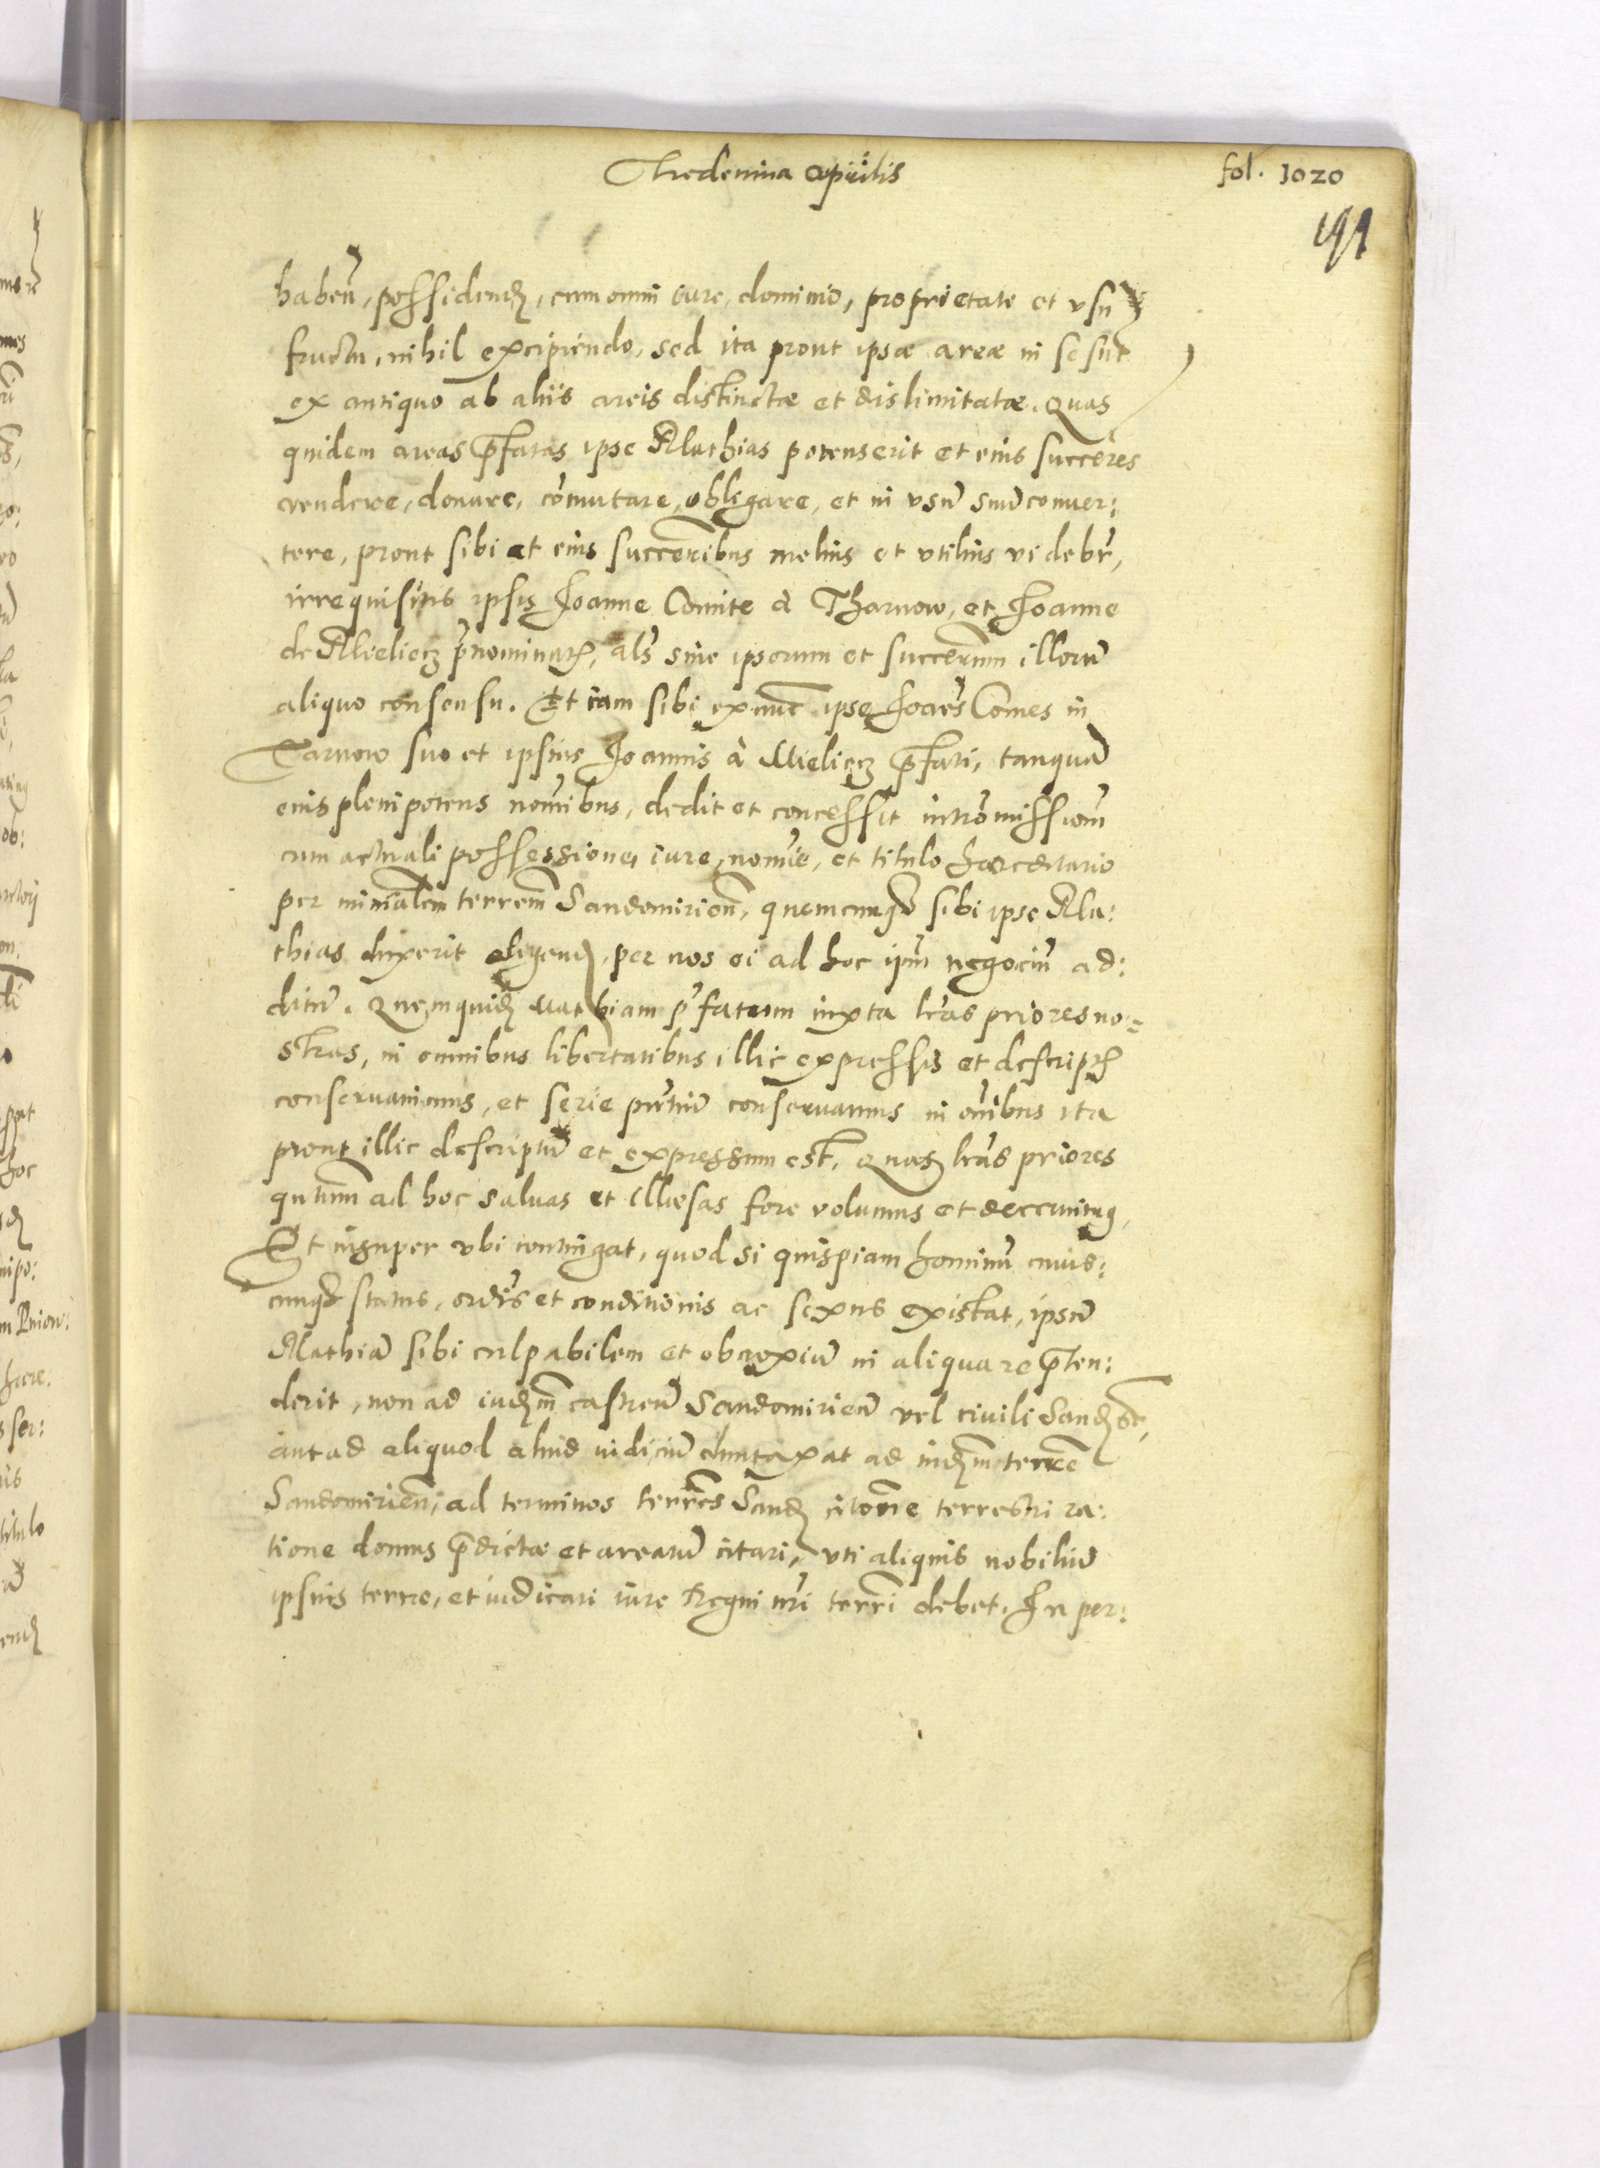 Tredecima Aprilis
fol. 1020
191
haben, possidend, cum omni iure, dominio, proprietate et vsu
fructu, nihil excipiendo, sed ita prout ipsæ areæ in se sunt
ex antiquo ab aliis areis distinctæ et dislimitatæ. Quas
quidem areas p̃fatas ipse Mathias potens erit et eius succeres
vendere, donare, cõmutare, obligare, et in vsũ suũ conuer:
tere, prout sibi et eius succeribus melius et vtilius videbr,
irrequisitis ipsis Joanne Comite à Tharnow, et Joanne
de Mieliecz p̃nominatis, als sine ipsorum et succerum illorũ
aliquo consensu. Et iam sibi ex nunc ipse Joaes Comes in
Tarnow suo et ipsius Joannis à Mieliecz p̃fati, tanquã
eius plenipotens noĩbus, dedit et concessit intromissionẽ
cum actuali possessione, iure, noĩe, et titulo hæreditario
per minialem terrem Sandomirien, quemcunq sibi ipse Ma:
thias duxerit eligend, per nos ei ad hoc ipm negociũ ad:
ditũ. Quemquid Mathiam p̃fatum iuxta lras priores no=
stras, in omnibus libertatibus illic expressis et descriptis
conseruauimus, et serie pñtium conseruamus in oĩbus ita
prout illic descriptũ et expressum est. Quas lras priores
qutum ad hoc saluas et illæsas fore volumus et decernimus,
Et insuper vbi contingat, quod si quispiam hominũ cuius:
cunq status, ordĩs et conditionis ac sexus existat, ipsum
Mathiã sibi culpabilem et obnoxiũ in aliqua re p̃ten:
derit, non ad iudm castren Sandomirien vel ciuili Sand
aut ad aliquod aliud iudiciũ duntaxat ad iudm terre
Sandomirien, ad terminos terres Sand citone terrestri ra:
tione domus p̃dictæ et arearũ citari, vti aliquis nobiliũ
ipsius terræ, et iudicari iure Regni nri terri debet. In per: